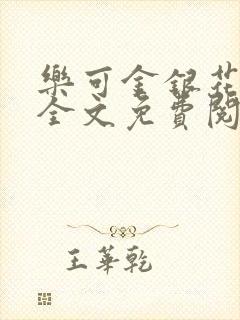 樂可金銀花
全文免費閱
王華乾